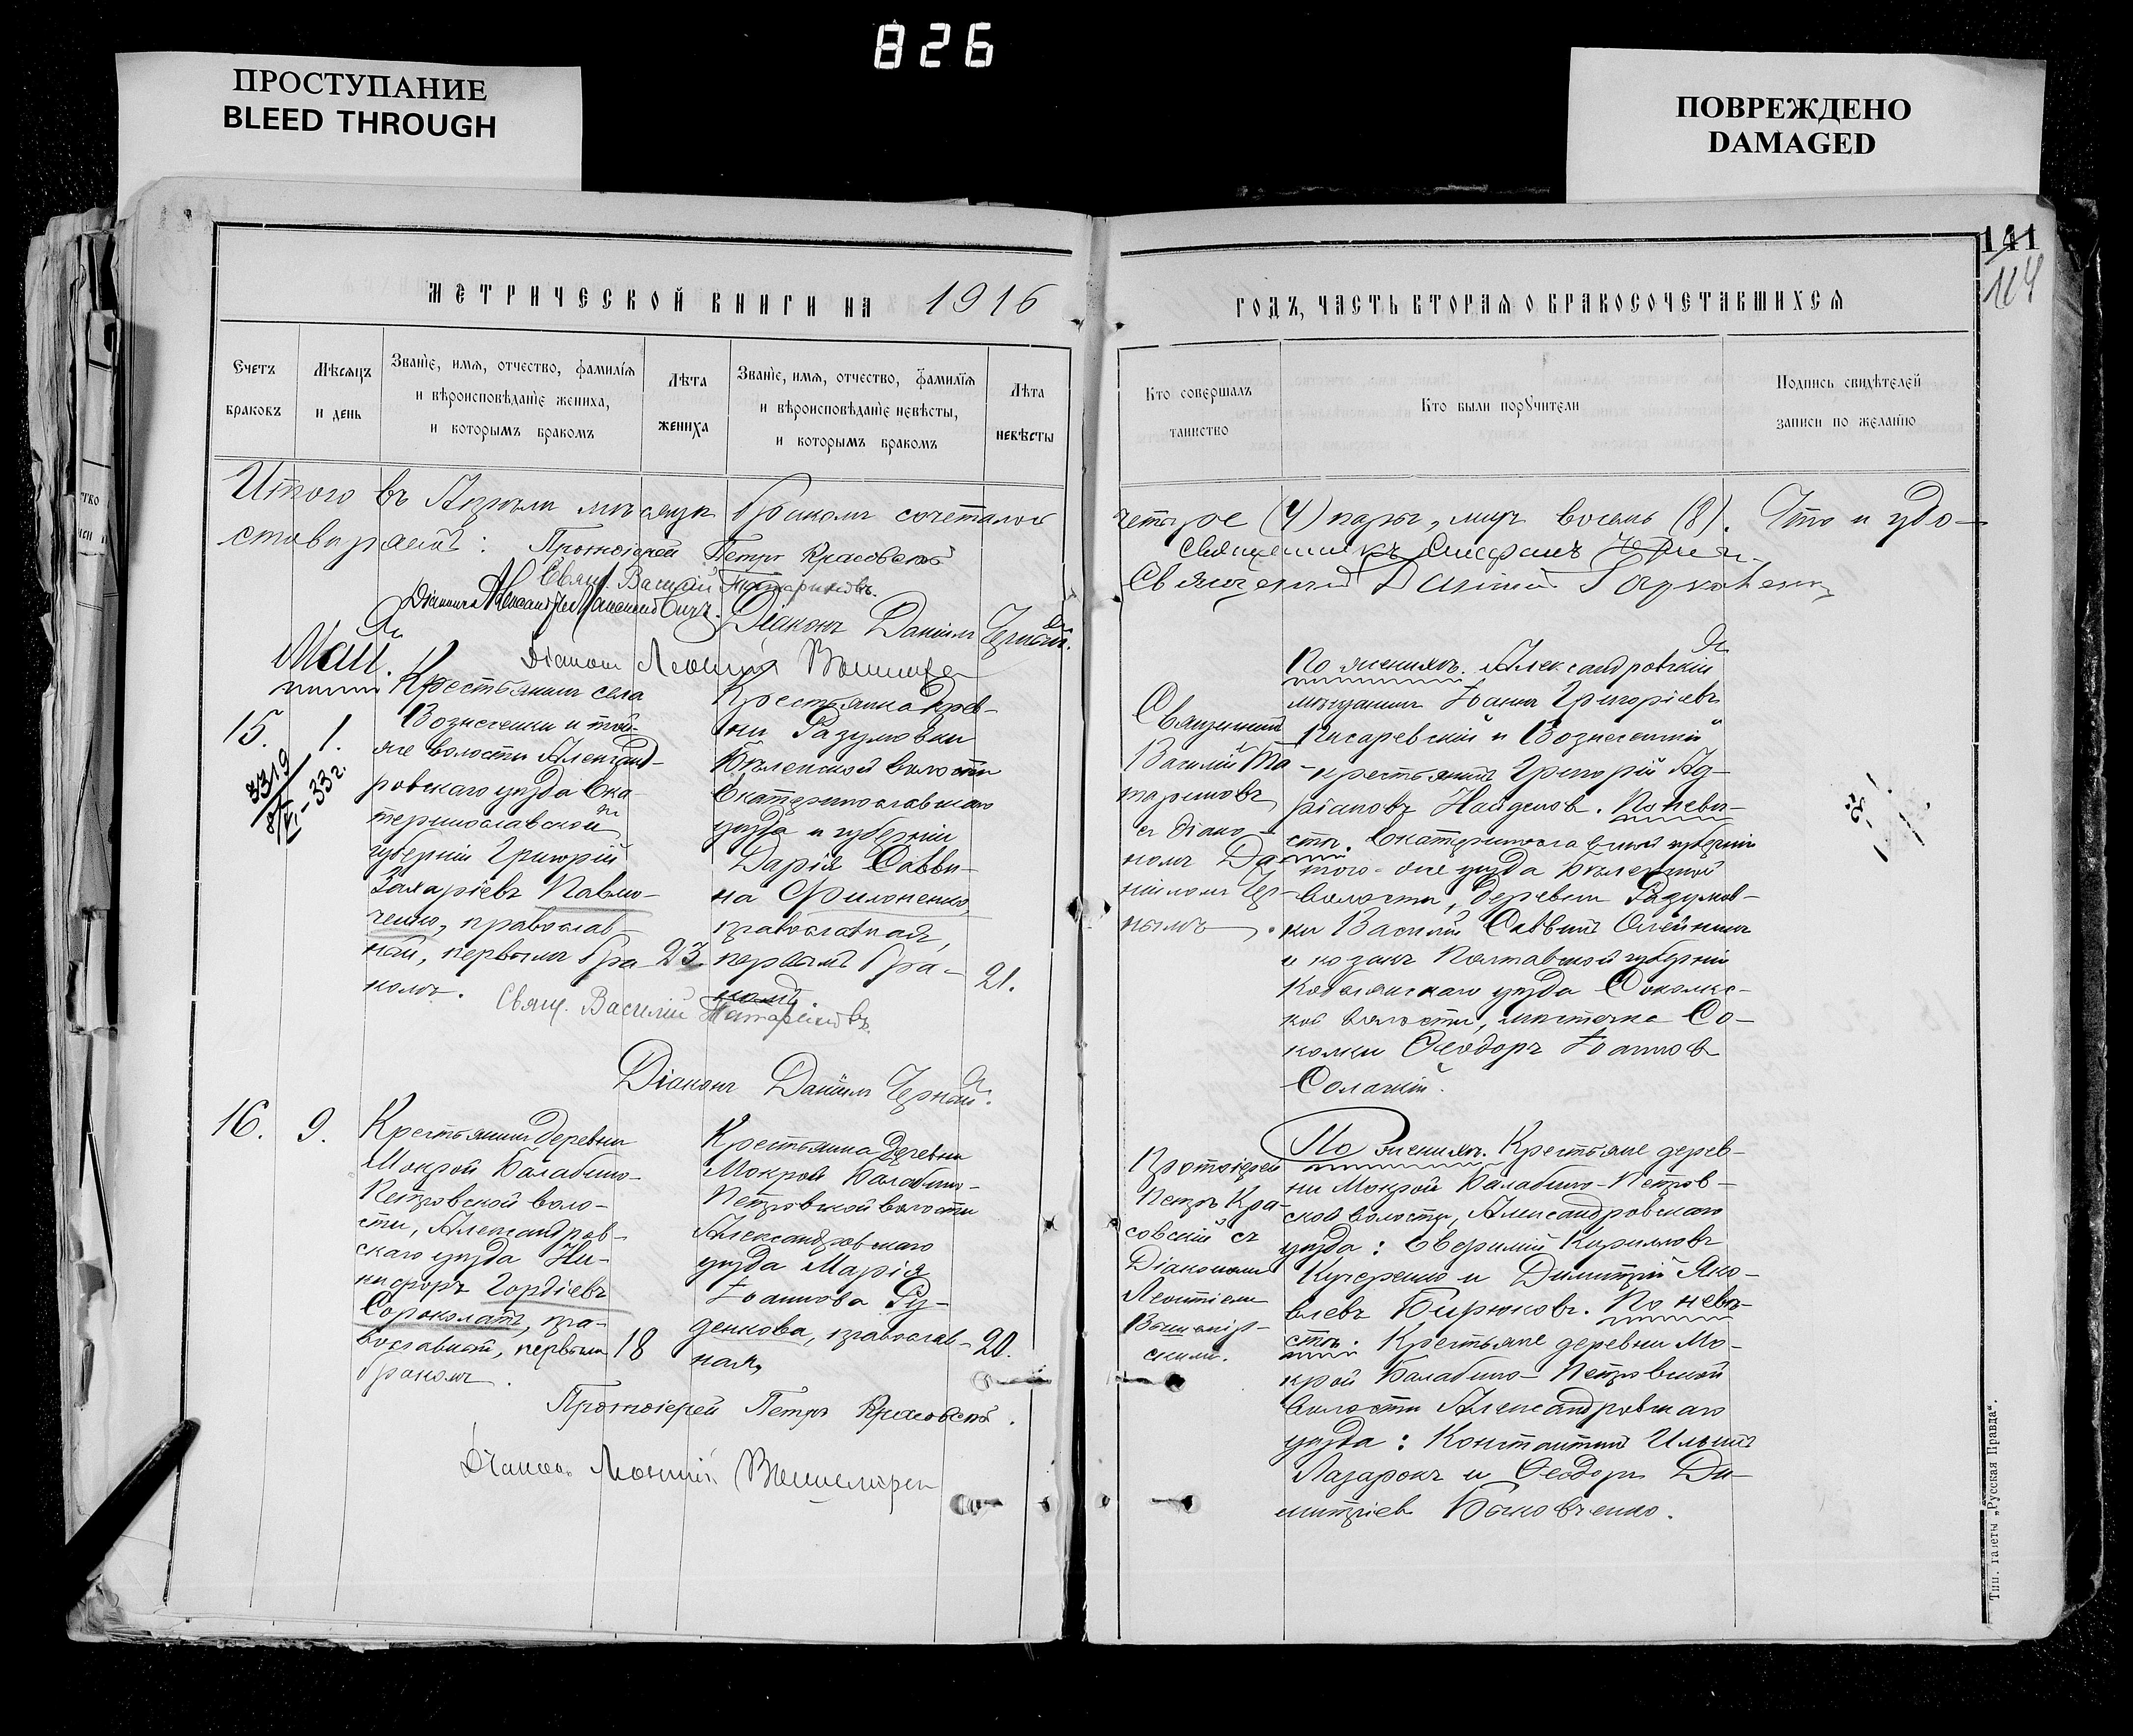 826
ПРОСТУПАНИЕ
BLEED THROUGH
ПОВРЕЖДЕНО
DAMAGED
141
114
МЕТРИЧЕСКОЙ КНИГИ НА 1916
ГОДЪ, ЧАСТЬ ВТОРАЯ О БРАКОСОЧЕТАВШИХСЯ
Счетъ браковъ
Мѣсяцъ и день
Званіе, имя, отчество, фамилія
и вѣроисповѣданіе жениха,
и которымъ бракомъ
Лѣта
жениха
Званіе, имя, отчество, фамилія
и вѣроисповѣданіе невѣсты,
и которымъ бракомъ
Лѣта
невѣсты
Кто совершалъ
таинство
Кто были порꙋчители
Подпись свидѣтелей
записи по желанію
Итого въ Апрѣлѣ мѣсяцѣ бракомъ сочеталось
четыре (4) пары, лицъ восемь (8). Что и удо-
стовѣряемъ: Протоіерей Петръ Красовскій
Свящ. Василій Татариновъ.
Діаконъ Даніилъ Черный.
Священникъ Стефанъ
Священникъ Даніилъ
Діаконъ Леонтій
Май.
15.
1.
3319
33 г.
Крестьянинъ села
Вознесенки и той-
же волости Александ-
ровскаго уѣзда Ека-
теринославской
губерніи Григорій
Захаріевъ Павлю-
ченко, православ-
ный, первымъ бра-
комъ.
23.
Крестьянка дерев-
ни Разумовки
Бѣленской волости
Екатеринославскаго
уѣзда и губерніи
Дарія Савви-
на Филоненко,
православная,
первымъ бра-
комъ.
21.
Свящ. Василій Татариновъ.
Діаконъ Даніилъ Черный.
Священникъ
Василій Та-
тариновъ
съ діако-
номъ Да-
ніиломъ Чер-
нымъ
По женихѣ. Александровскій
мѣщанинъ Іоаннъ Григоріевъ
Писаревскій и Вознесенскій
крестьянинъ Григорій Ад-
ріановъ Найденовъ. По невѣ-
стѣ. Екатеринославской губерніи
того-же уѣзда Бѣленской
волости, деревни Разумов-
ки Василій Саввинъ Олейникъ
и козакъ Полтавской губерніи
Кобелякскаго уѣзда Соколкс-
кой волости, мѣстечка Со-
колки Ѳеодоръ Іоанновъ
16.
9.
Крестьянинъ деревни
Мокрой Балабино-
Петровской воло-
сти, Александров-
скаго уѣзда Ни-
кифоръ Гордіевъ
Сороколатъ, пра-
вославный, первымъ
бракомъ.
18
Крестьянка деревни
Мокрой Балабино-
Петровской волости
Александровскаго
уѣзда Марія
Іоаннова Ру-
денкова, православ-
ная,
20.
Протоіерей Петръ Красовскій.
Діаконъ Леонтій
Протоіерей
Петръ Кра-
совскій съ
Діакономъ
Леонтіемъ
По женихѣ. Крестьяне дерев-
ни Мокрой Балабино-Петров-
ской волости, Александровскаго
уѣзда: Евфимій Кирилловъ
Кучеренко и Димитрій Яко-
влевъ Бирюковъ. По невѣ-
стѣ. Крестьяне деревни Мо-
крой Балабино-Петровской
волости Александровскаго
уѣзда: Константинъ Ильинъ
Ѳеодоръ Ди-
митріевъ
Тип. газеты „Русская Правда“.